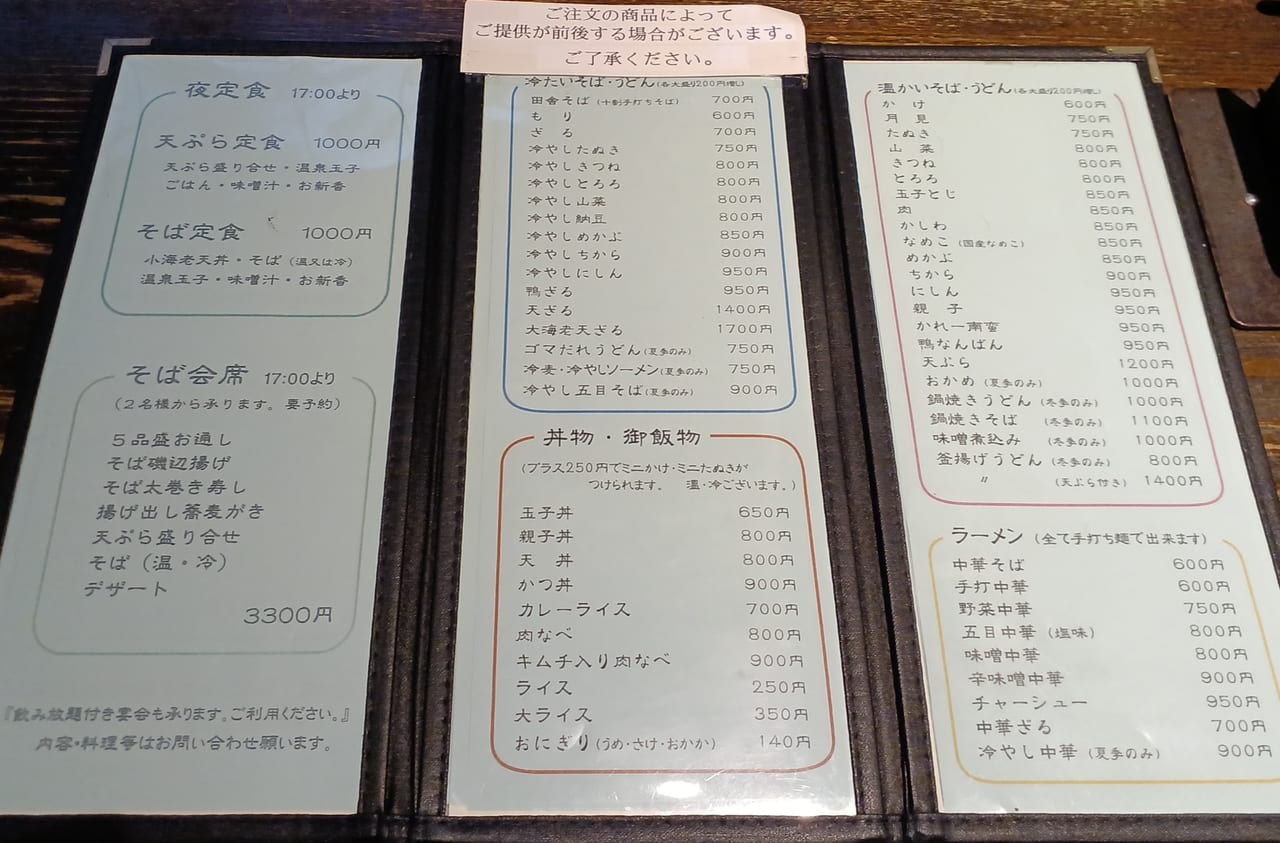 ご注文の商品によって
ご提供が前後する場合がございます。
ご了承ください。
夜定食 17:00より
天ぷら定食 1000円
天ぷら盛り合せ・温泉玉子
ごはん・味噌汁・お新香
そば定食 1000円
小海老天丼・そば（温又は冷）
温泉玉子・味噌汁・お新香
そば会席 17:00より
（２名様から承ります。要予約）
５品盛お通し
そば磯辺揚げ
そば太巻き寿し
揚げ出し蕎麦がき
天ぷら盛り合せ
そば（温・冷）
デザート
3300円
『飲み放題付き宴会も承ります。ご利用ください。』
内容・料理等はお問い合わせ願います。
冷たいそば・うどん（各大盛り200円増し）
田舎そば（十割手打ちそば） 700円
もり 600円
ざる 700円
冷やしたぬき 750円
冷やしきつね 800円
冷やしとろろ 800円
冷やし山菜 800円
冷やし納豆 800円
冷やしめかぶ 850円
冷やしちから 900円
冷やしにしん 950円
鴨ざる 950円
天ざる 1400円
大海老天ざる 1700円
ゴマだれうどん（夏季のみ） 750円
冷麦・冷やしソーメン（夏季のみ） 750円
冷やし五目そば（夏季のみ） 900円
丼物・御飯物
（プラス250円でミニかけ・ミニたぬきが
つけられます。 温・冷ございます。）
玉子丼 650円
親子丼 800円
天丼 800円
かつ丼 900円
カレーライス 700円
肉なべ 800円
キムチ入り肉なべ 900円
ライス 250円
大ライス 350円
おにぎり（うめ・さけ・おかか） 140円
温かいそば・うどん（各大盛り200円増し）
かけ 600円
月見 750円
たぬき 750円
山菜 800円
きつね 800円
とろろ 800円
玉子とじ 850円
肉 850円
かしわ 850円
なめこ（国産なめこ） 850円
めかぶ 850円
ちから 900円
にしん 950円
親子 950円
かれー南蛮 950円
鴨なんばん 950円
天ぷら 1200円
おかめ（夏季のみ） 1000円
鍋焼きうどん（冬季のみ） 1000円
鍋焼きそば（冬季のみ） 1100円
味噌煮込み（冬季のみ） 1000円
釜揚げうどん（冬季のみ） 800円
〃（天ぷら付き） 1400円
ラーメン（全て手打ち麺で出来ます）
中華そば 600円
手打中華 600円
野菜中華 750円
五目中華（塩味） 800円
味噌中華 800円
辛味噌中華 900円
チャーシュー 950円
中華ざる 700円
冷やし中華（夏季のみ） 900円